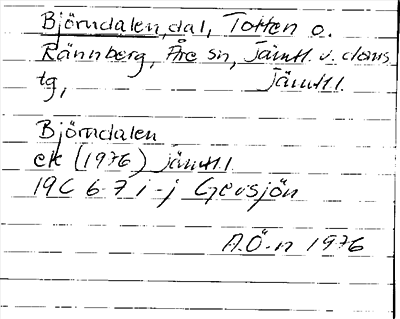 Björndalen, dal, Totten o.
Rännberg, Åre sn, Jämtl. v. doms
tg, Jämtl.
Björndalen
ek (1976) Jämtl.
19C 6-7 i-j Gevsjön
A.Ö-n 1976